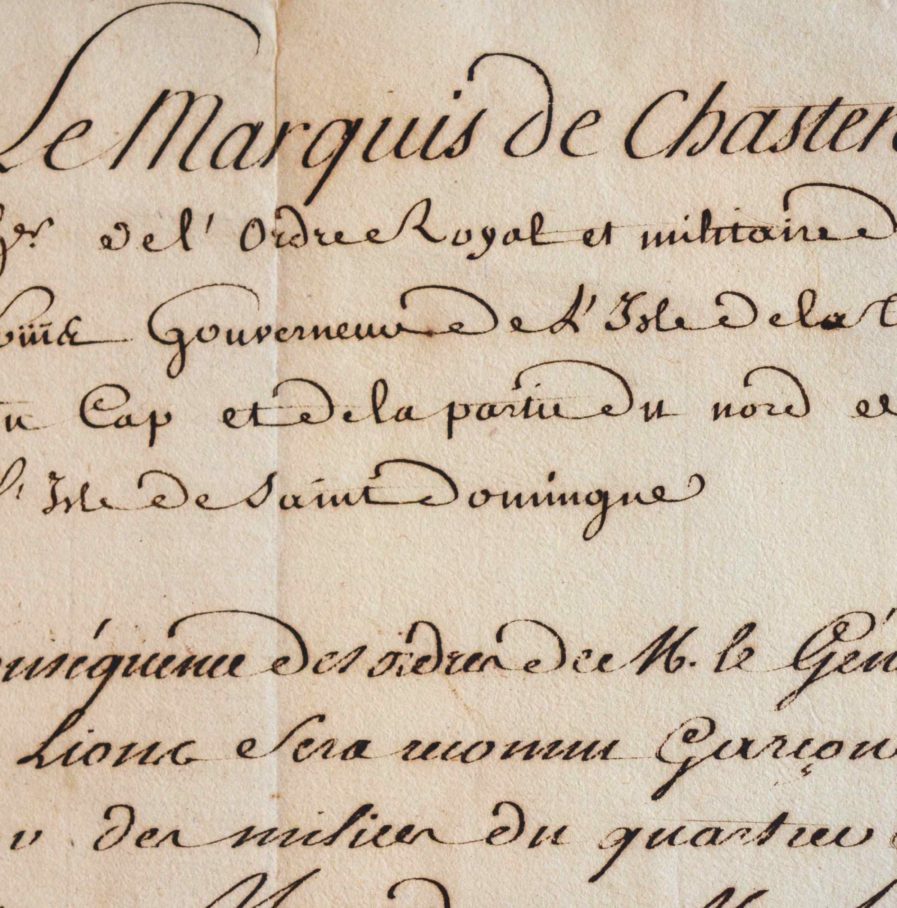 Le Marquis de Chasten
de l'Ordre Royal et militaire d
Gouverneur de L'Isle de la T
u Cap et de la partie du nord de
l' Isle de Saint Domingue
onséquence des ordres de M. le Gén
Lionc Sera reconnu Garçon
des milices du quartier